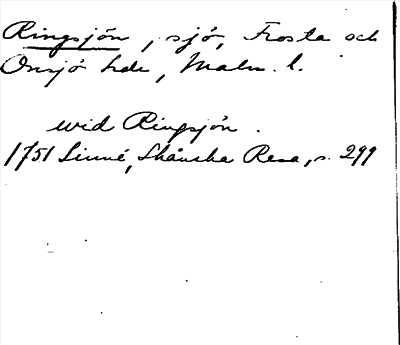 Ringsjön, sjö, Frosta och
Onsjö hde, Malm. l.
wid Ringsjön.
1751 Linné, Skånska Resa, s. 299